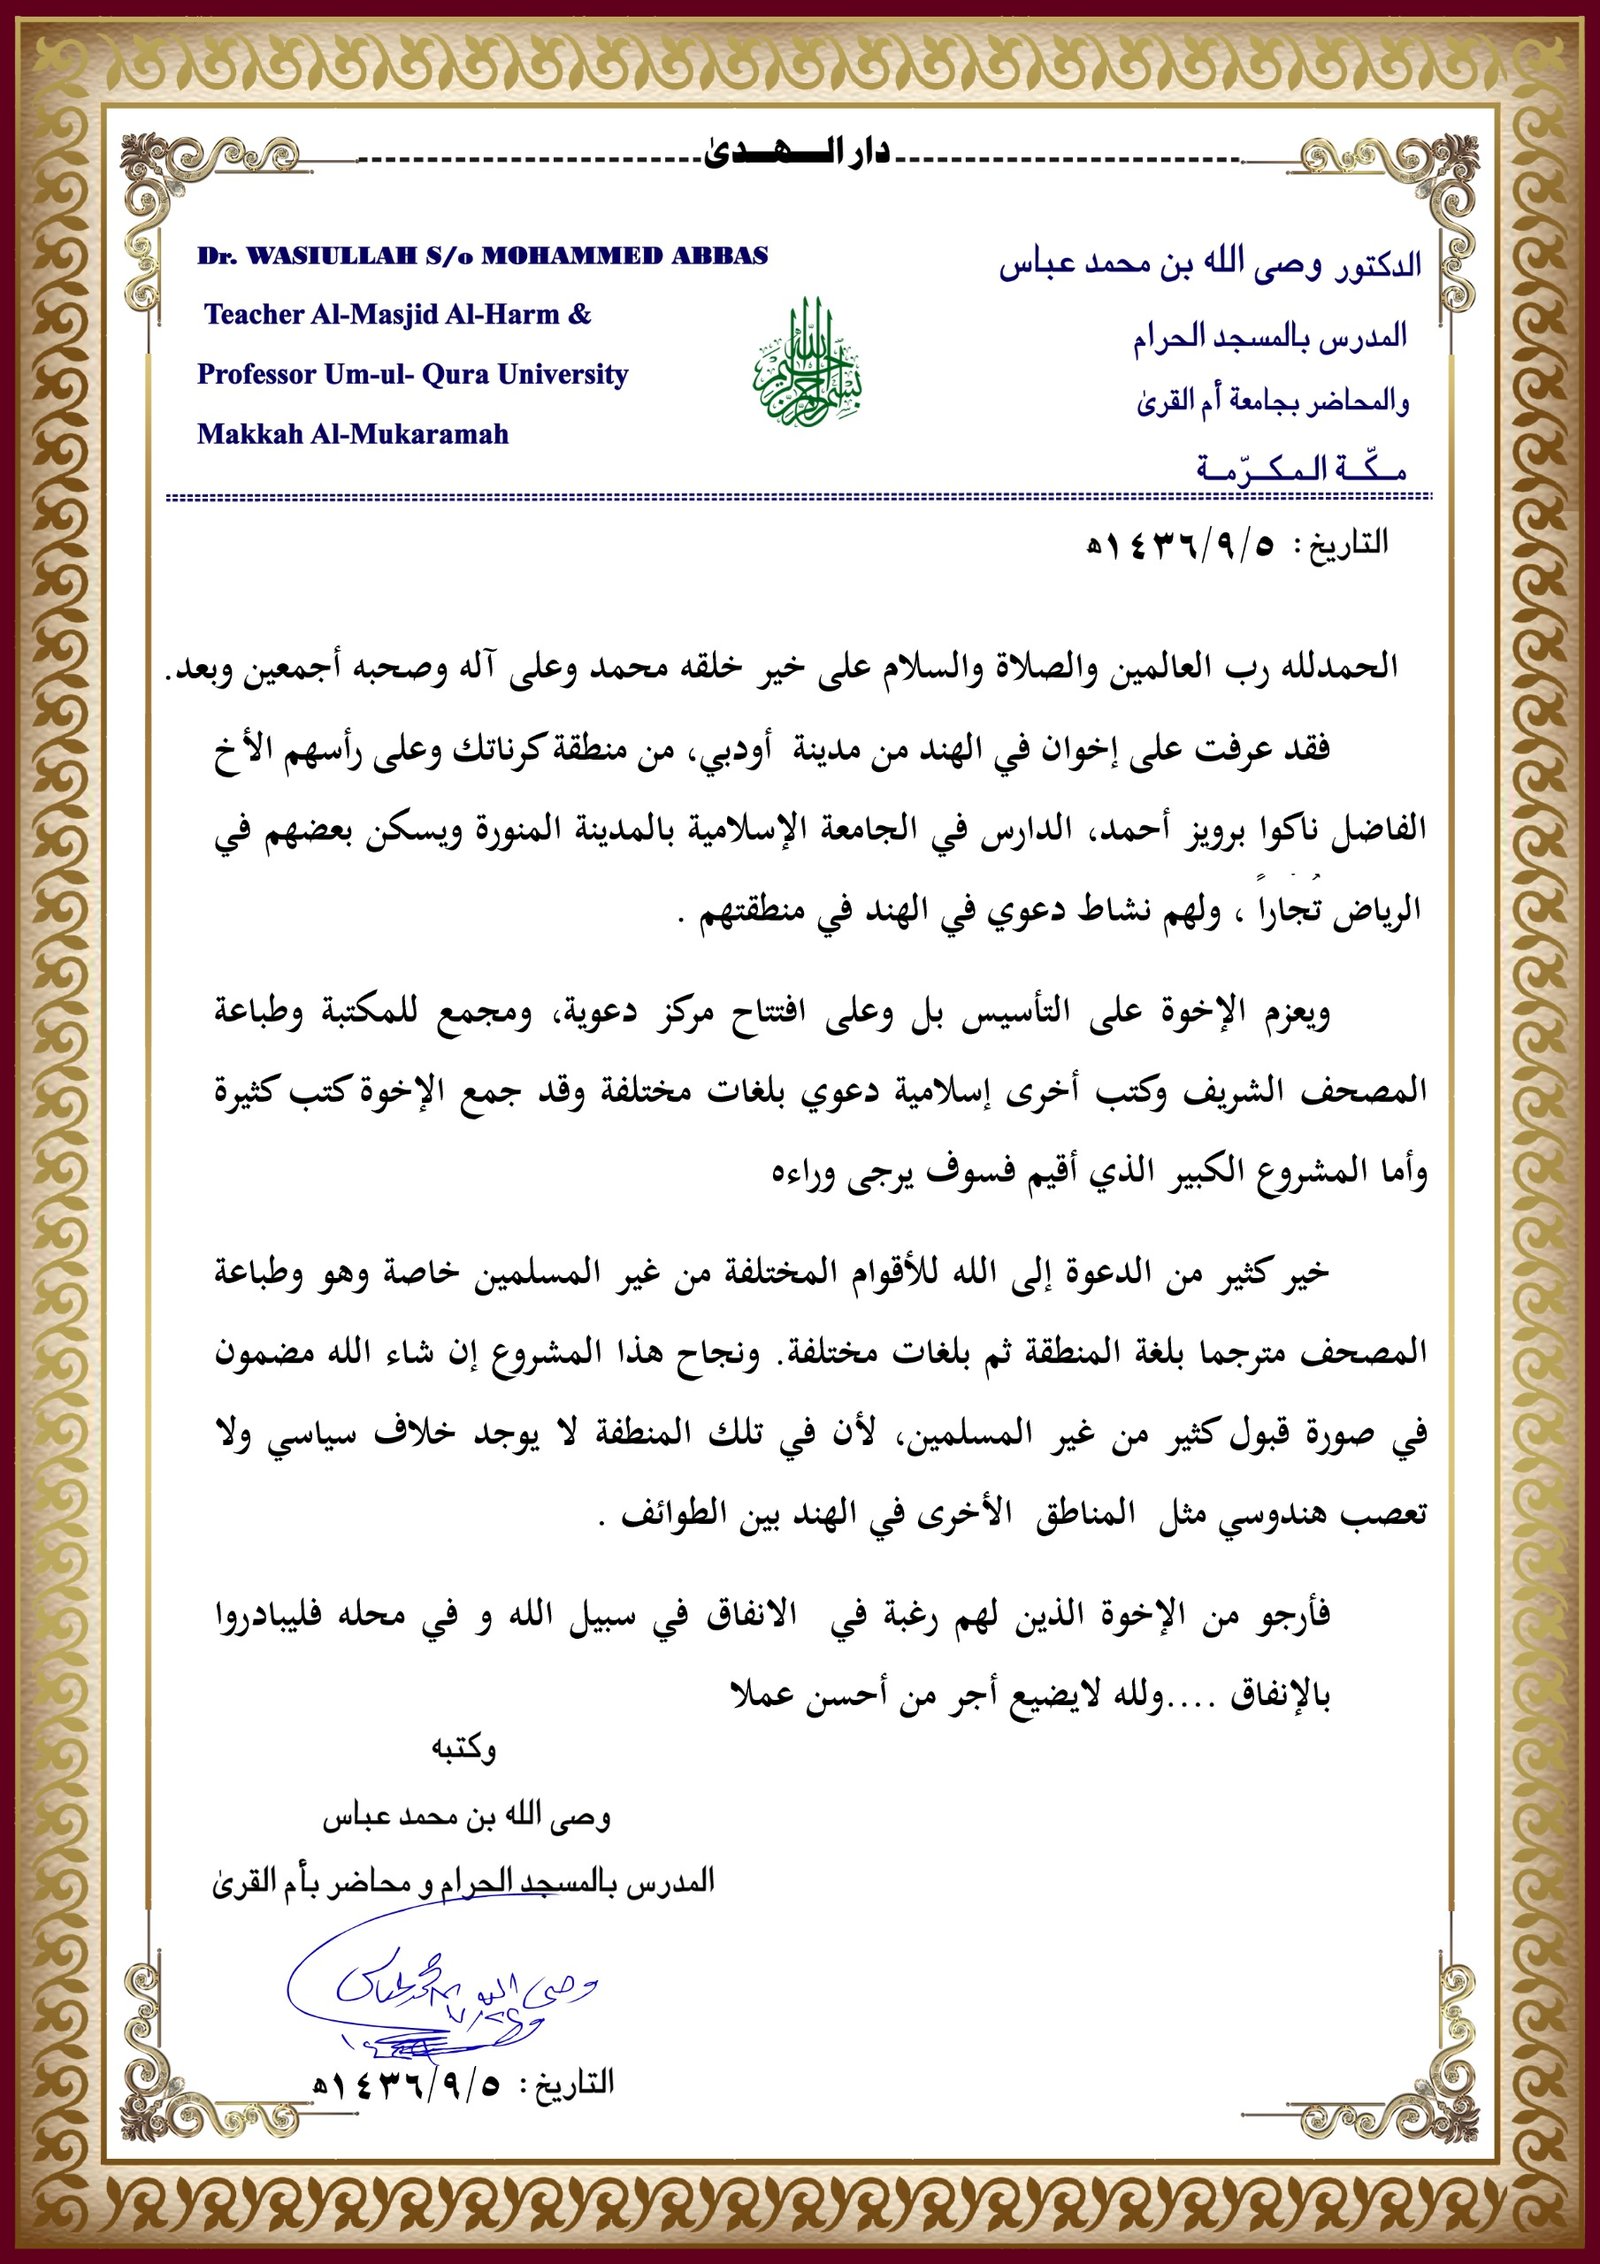 دار الـــهـــدىٰ
Dr. WASIULLAH S/o MOHAMMED ABBAS
Teacher Al-Masjid Al-Harm &
Professor Um-ul- Qura University
Makkah Al-Mukaramah
بسم الله الرحمن الرحيم
الدكتور وصى الله بن محمد عباس
المدرس بالمسجد الحرام
والمحاضر بجامعة أم القرىٰ
مـكّـة الـمـكـرّمـة
التاريخ: ١٤٣٦/٩/٥ه
الحمدلله رب العالمين والصلاة والسلام على خير خلقه محمد وعلى آله وصحبه أجمعين وبعد.
فقد عرفت على إخوان في الهند من مدينة أودبي، من منطقة كرناتك وعلى رأسهم الأخ
الفاضل ناكوا برويز أحمد، الدارس في الجامعة الإسلامية بالمدينة المنورة ويسكن بعضهم في
الرياض تُجاراً ، ولهم نشاط دعوي في الهند في منطقتهم .
ويعزم الإخوة على التأسيس بل وعلى افتتاح مركز دعوية، ومجمع للمكتبة وطباعة
المصحف الشريف وكتب أخرى إسلامية دعوي بلغات مختلفة وقد جمع الإخوة كتب كثيرة
وأما المشروع الكبير الذي أقيم فسوف يرجى وراءه
خير كثير من الدعوة إلى الله للأقوام المختلفة من غير المسلمين خاصة وهو وطباعة
المصحف مترجما بلغة المنطقة ثم بلغات مختلفة. ونجاح هذا المشروع إن شاء الله مضمون
في صورة قبول كثير من غير المسلمين، لأن في تلك المنطفة لا يوجد خلاف سياسي ولا
تعصب هندوسي مثل المناطق الأخرى في الهند بين الطوائف .
فأرجو من الإخوة الذين لهم رغبة في الانفاق في سبيل الله و في محله فليبادروا
بالإنفاق ....ولله لايضيع أجر من أحسن عملا
وكتبه
وصى الله بن محمد عباس
المدرس بالمسجد الحرام و محاضر بأم القرىٰ
وصى الله بن محمد عباس
التاريخ: ١٤٣٦/٩/٥ه